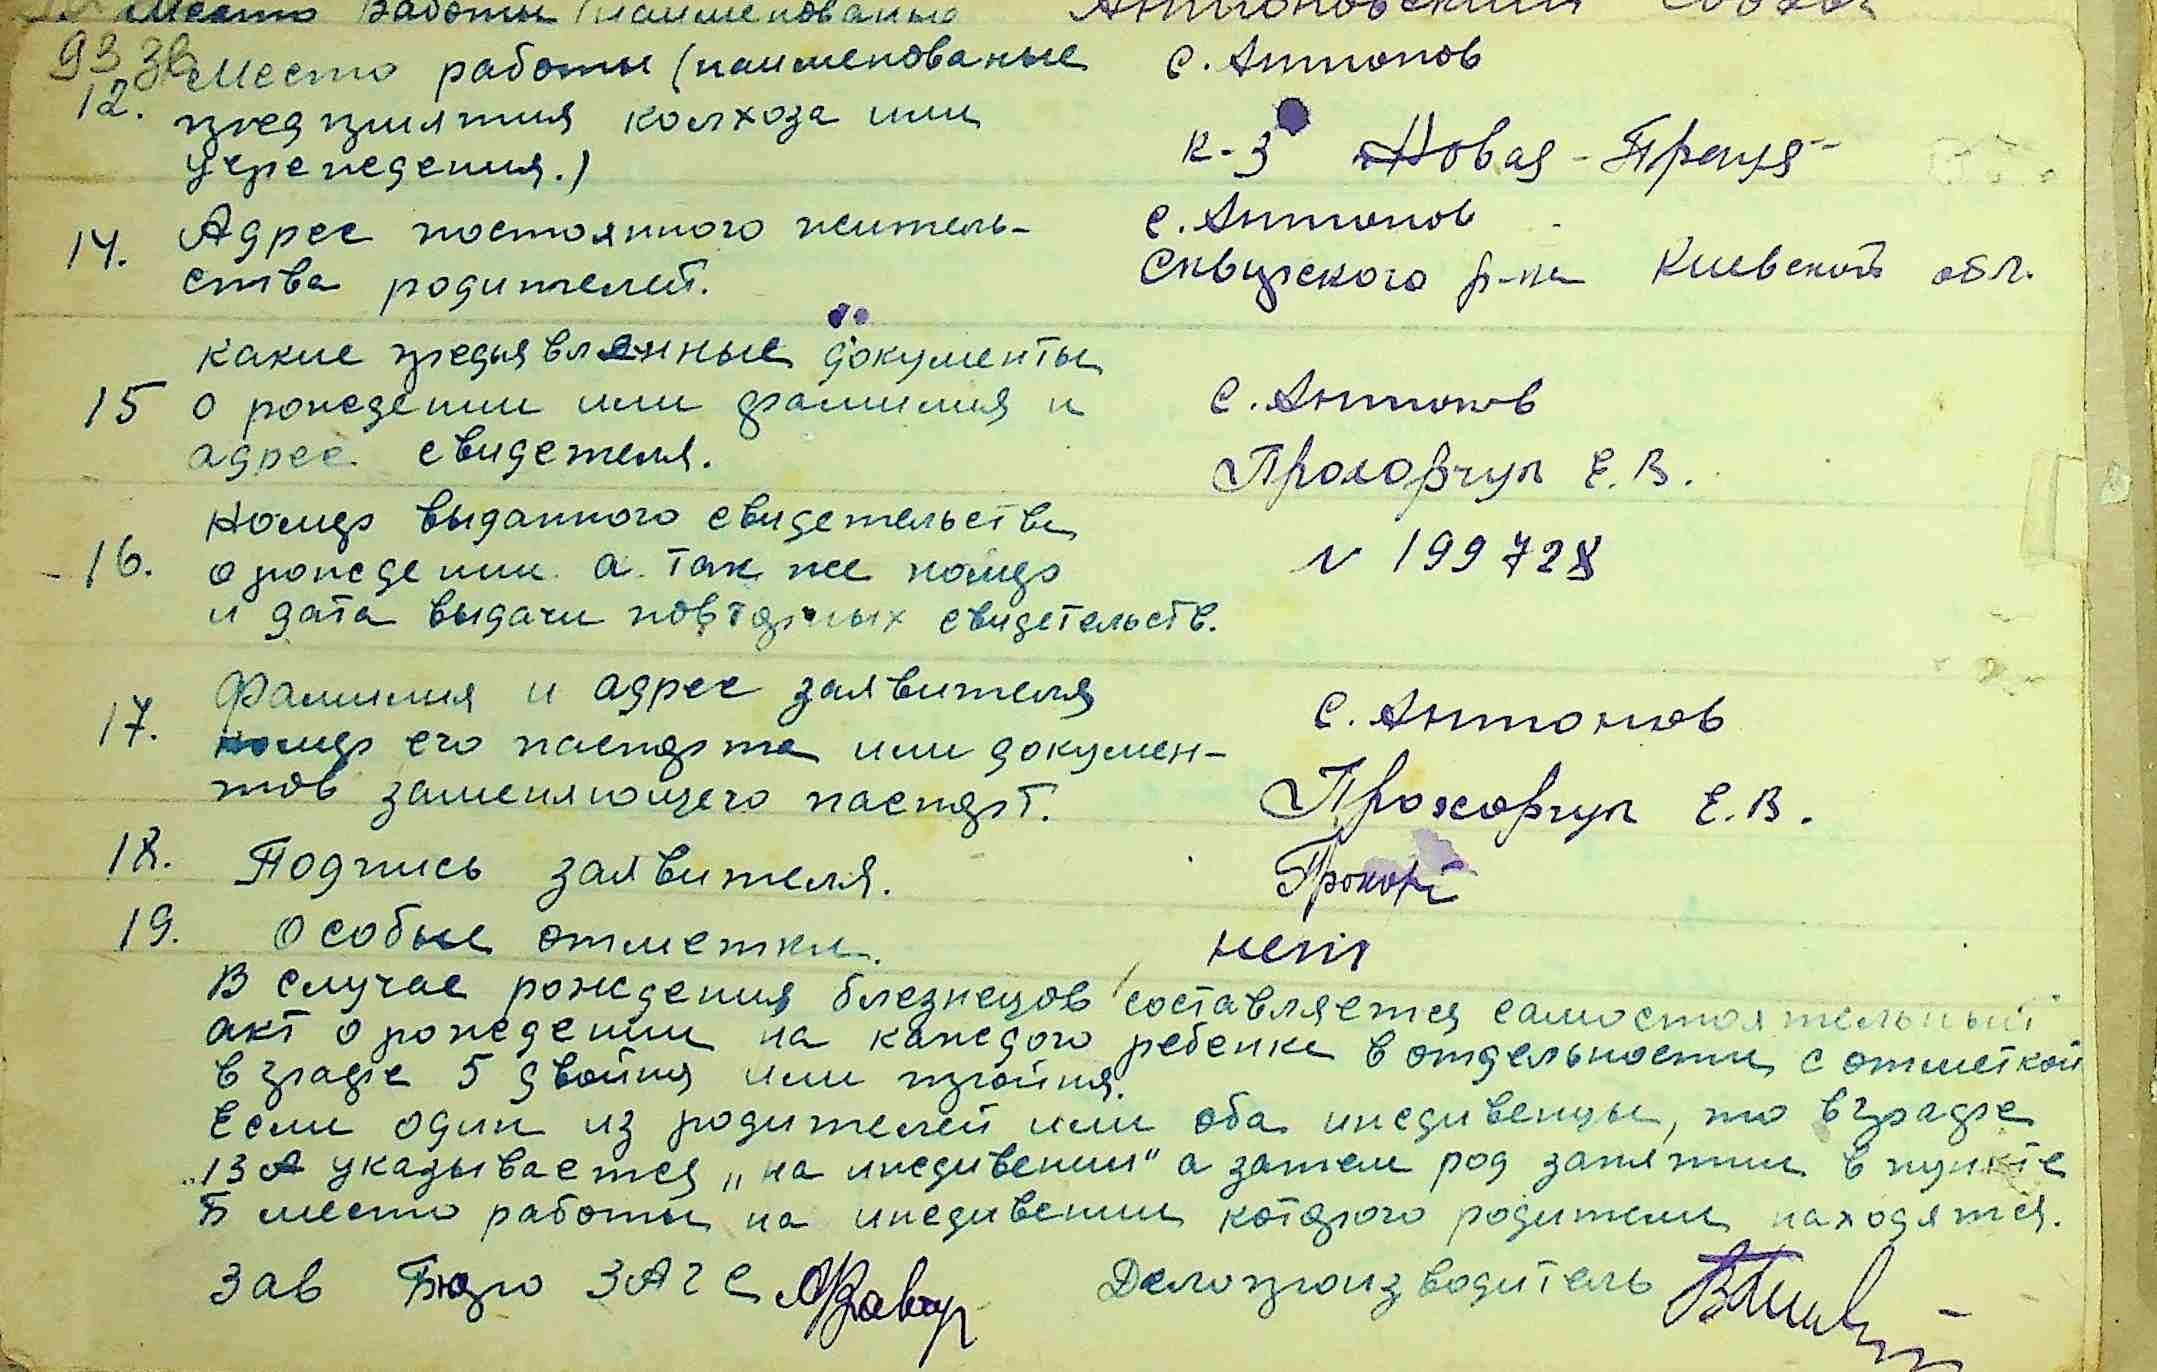 Место работы (наименованые
Антоновский
93 Зв
Место работы (наименованые с. Антонов
12. предприятия колхоза или
учреждения.) к-з Новая-Праця
14. Адрес постоянного житель- с. Антонов
ства родителей. Сквирского р-на Киевской обл.
какие предъявленные документы
15 о рождении или фамилия и с. Антонов
адрес свидетеля. Прохорчук Е. В.
Номер выданного свидетельства
16. о рождении а так же номер N 199728
и дата выдачи повторных свидетельств.
Фамилия и адрес заявителя с. Антонов
17. номер его паспорта или докумен-
тов заменяющего паспорт. Прохорчук Е. В.
18. Подпись заявителя.
19. Особые отметки. нет
В случае рождения близнецов составляется самостоятельный
акт о рождении на каждого ребенка в отдельности с отметкой
в графе 5 двойня или тройня.
Если один из родителей или оба иждивенцы, то в графе
13 А указывается „на иждивении" а затем род занятии в пункте
Б место работы на иждивении которого родители находятся.
Зав Бюро ЗАГС Делопроизводитель